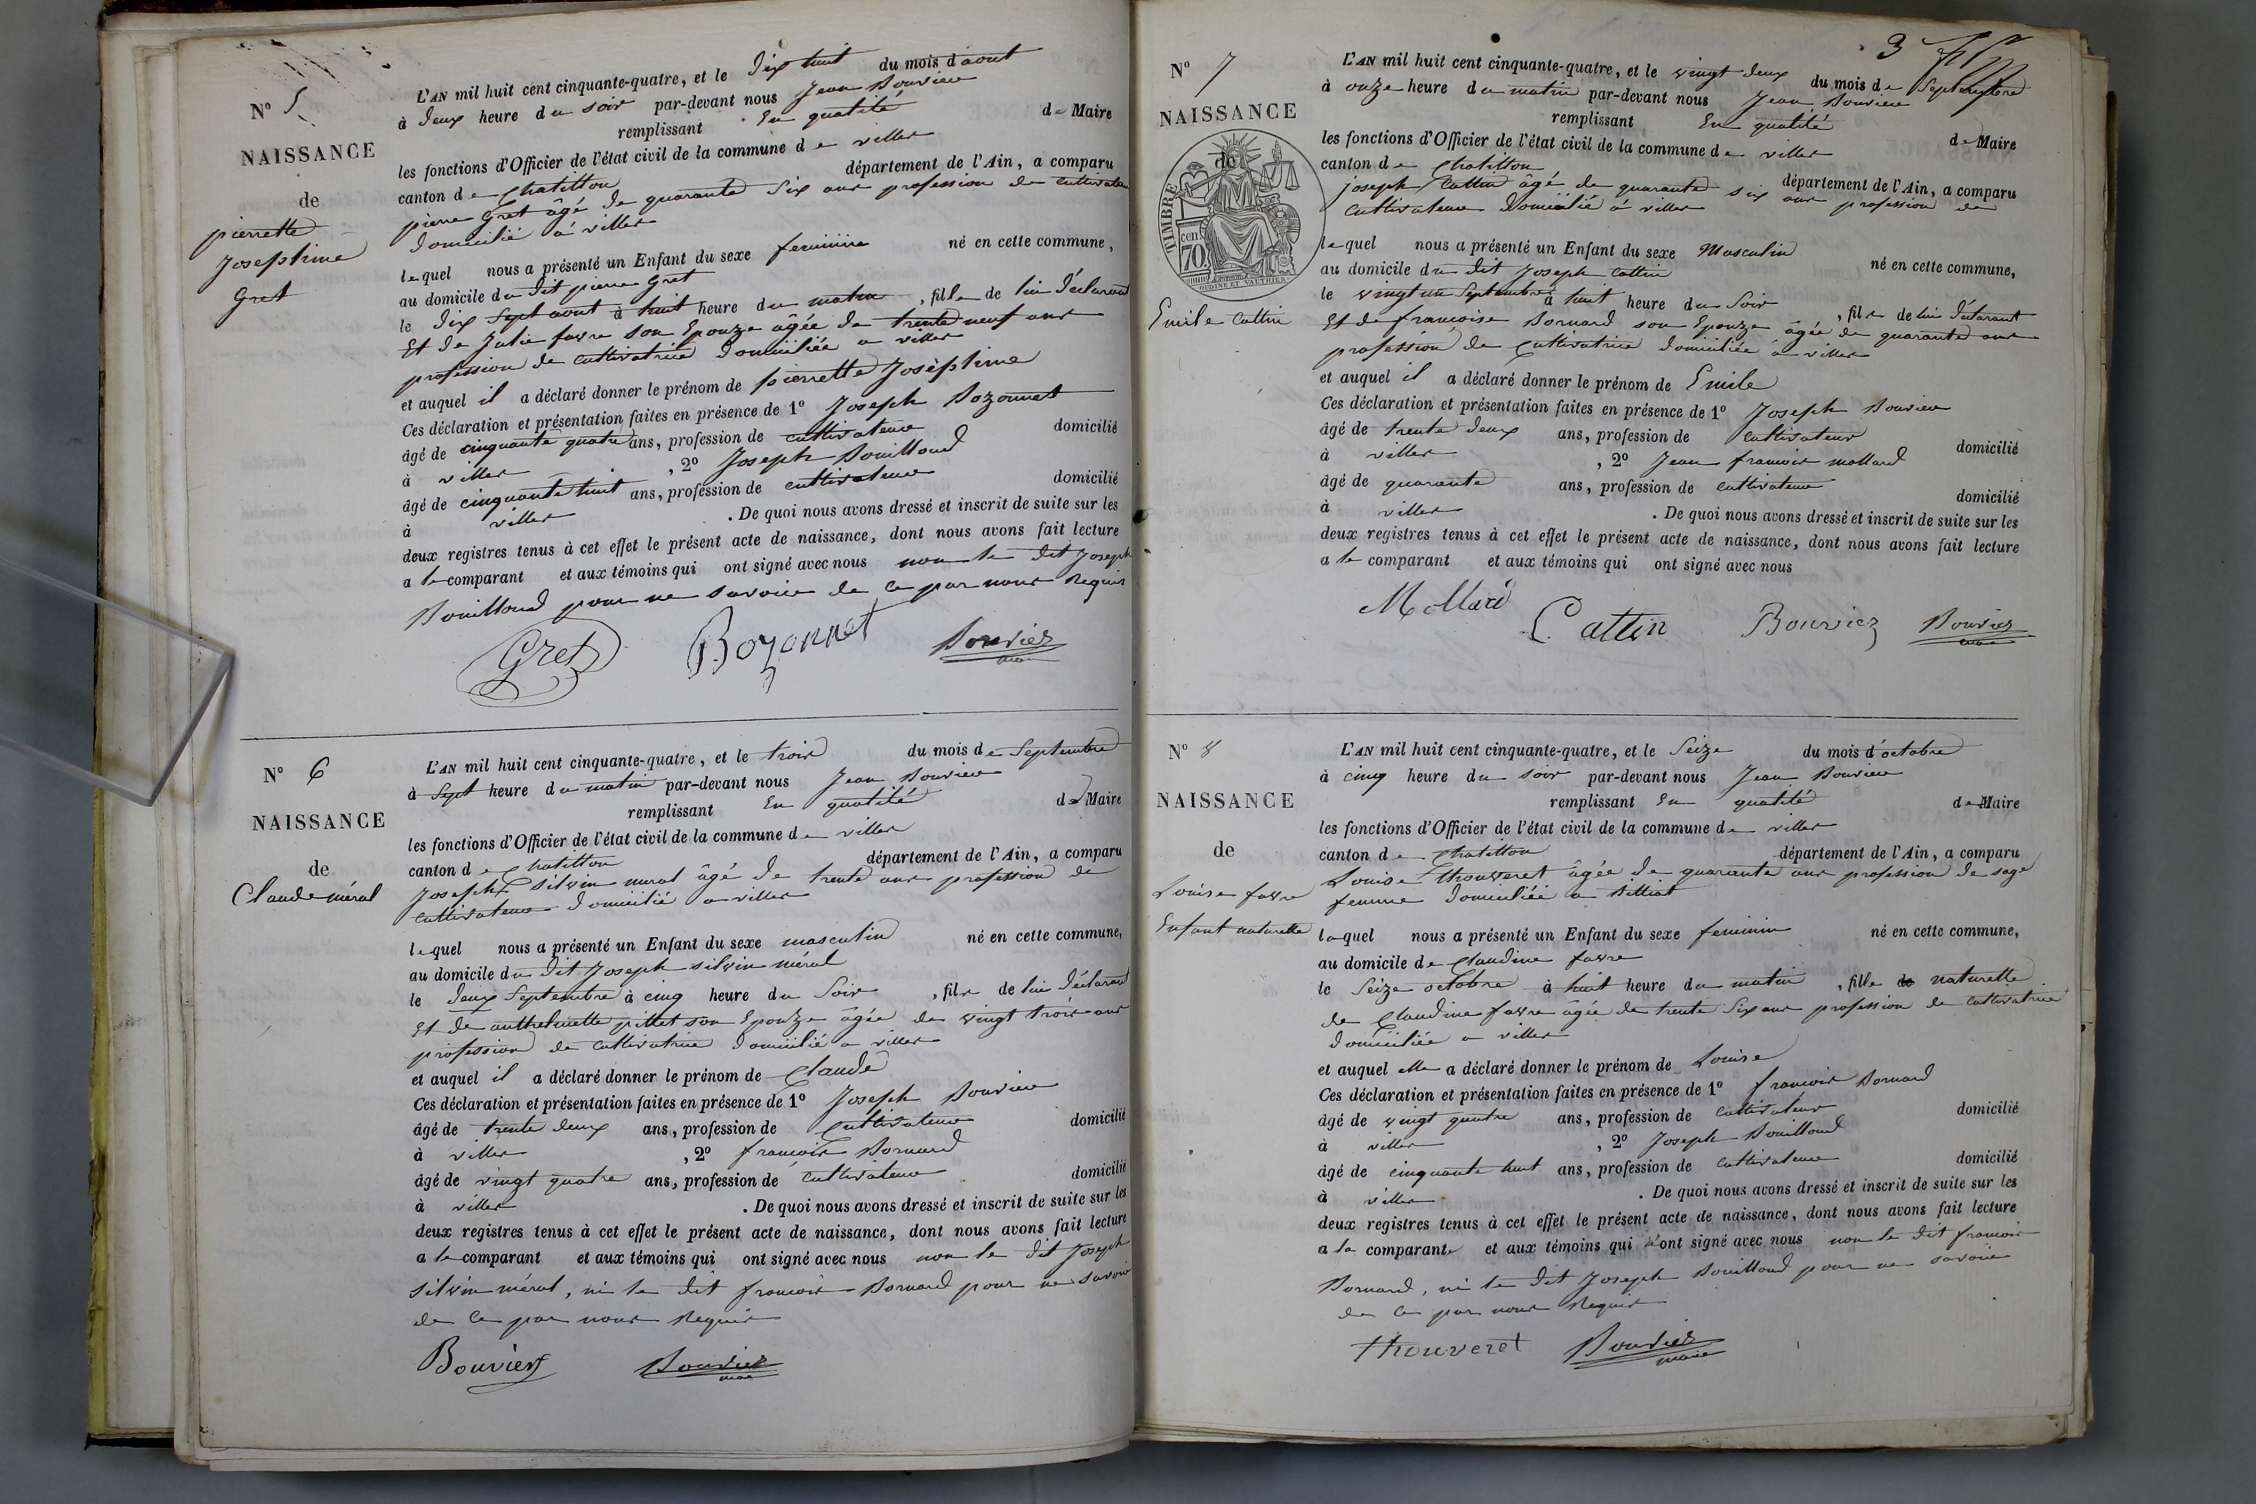 N° 5
NAISSANCE
de
pierrette
Joséphine
Gret
L'AN mil huit cent cinquante-quatre, et le dix huit du mois d'aout
à deux heure du soir par-devant nous Jean Bouvier
remplissant En qualité de Maire
les fonctions d'Officier de l'état civil de la commune de villes
canton de Chatillon département de l'Ain, a comparu
pierre Gret âgé de quarante six ans profession de cultivateur
domicilié à villes
lequel nous a présenté un Enfant du sexe feminin né en cette commune,
au domicile du dit pierre Gret
le dix sept aout à huit heure du matin, fille de lui déclarant
Et de Julie favre son Epouze âgée de trente neuf ans
profession de cultivatrice domiciliée a villes
et auquel il a déclaré donner le prénom de pierrette Joséphine
Ces déclaration et présentation faites en présence de 1° Joseph Bozonnet
âgé de cinquante quatre ans, profession de cultivateur domicilié
à villes, 2° Joseph Bouilloud
âgé de cinquante huit ans, profession de cultivateur domicilié
à villes. De quoi nous avons dressé et inscrit de suite sur les
deux registres tenus à cet effet le présent acte de naissance, dont nous avons fait lecture
a le comparant et aux témoins qui ont signé avec nous non le dit Joseph
Bouilloud pour ne savoir de ce par nous Requis
Gret Bozonnet Bouvier
maire
N° 6
NAISSANCE
de
Claude méral
L'AN mil huit cent cinquante-quatre, et le trois du mois de Septembre
à Sept heure du matin par-devant nous Jean Bouvier
remplissant En qualité de Maire
les fonctions d'Officier de l'état civil de la commune de villes
canton de Chatillon département de l'Ain, a comparu
Joseph silvin méral âgé de trente ans profession de
cultivateur domicilié a villes
lequel nous a présenté un Enfant du sexe masculin né en cette commune,
au domicile du dit Joseph silvin méral
le deux Septembre à cinq heure du Soir, fils de lui déclarant
Et de anthelmette pillet son Epouze âgée de vingt trois ans
profession de cultivatrice domicilié a villes
et auquel il a déclaré donner le prénom de Claude
Ces déclaration et présentation faites en présence de 1° Joseph Bouvier
âgé de trente deux ans, profession de Cultivateur domicilié
à villes, 2° francois Bornard
âgé de vingt quatre ans, profession de cultivateur domicilié
à villes. De quoi nous avons dressé et inscrit de suite sur les
deux registres tenus à cet effet le présent acte de naissance, dont nous avons fait lecture
a le comparant et aux témoins qui ont signé avec nous non le dit Joseph
silvin méral, ni le dit francois Bornard pour ne savoir
de ce par nous Requis
Bouvier Bouvier
maire
3
N° 7
NAISSANCE
de
TIMBRE
cen.
70
OUDINÉ ET VAUTHIER
Emile Cattin
L'AN mil huit cent cinquante-quatre, et le vingt deux du mois de Septembre
à onze heure du matin par-devant nous Jean Bouvier
remplissant En qualité de Maire
les fonctions d'Officier de l'état civil de la commune de villes
canton de Chatillon département de l'Ain, a comparu
joseph Cattin âgé de quarante six ans profession de
cultivateur domicilié à villes
lequel nous a présenté un Enfant du sexe Masculin né en cette commune,
au domicile du dit Joseph Cattin
le vingt un Septembre à huit heure du Soir, fils de lui déclarant
Et de francoise Bornard son Epouze âgée de quarante ans
profession de Cultivatrice domiciliée à villes
et auquel il a déclaré donner le prénom de Emile
Ces déclaration et présentation faites en présence de 1° Joseph Bouvier
âgé de trente deux ans, profession de cultivateur domicilié
à villes, 2° Jean francois mollard
âgé de quarante ans, profession de cultivateur domicilié
à villes. De quoi nous avons dressé et inscrit de suite sur les
deux registres tenus à cet effet le présent acte de naissance, dont nous avons fait lecture
a le comparant et aux témoins qui ont signé avec nous
Mollard Cattin Bouvier Bouvier
maire
N° 8
NAISSANCE
de
Louise favre
Enfant naturelle
L'AN mil huit cent cinquante-quatre, et le Seize du mois d'octobre
à cinq heure du soir par-devant nous Jean Bouvier
remplissant En qualité de Maire
les fonctions d'Officier de l'état civil de la commune de villes
canton de Chatillon département de l'Ain, a comparu
Louise thouveret âgée de quarante ans profession de sage
femme domiciliée a billiat
laquel nous a présenté un Enfant du sexe feminin né en cette commune,
au domicile de Claudine favre
le Seize octobre à huit heure du matin, fille de naturelle
de Claudine favre âgée de trente Six ans profession de cultivatrice
domiciliée a villes
et auquel elle a déclaré donner le prénom de Louise
Ces déclaration et présentation faites en présence de 1° francois Bornard
âgé de vingt quatre ans, profession de cultivateur domicilié
à villes, 2° Joseph Bouilloud
âgé de cinquante huit ans, profession de cultivateur domicilié
à villes. De quoi nous avons dressé et inscrit de suite sur les
deux registres tenus à cet effet le présent acte de naissance, dont nous avons fait lecture
a la comparante et aux témoins qui n'ont signé avec nous non le dit francois
Bornard, ni le dit Joseph Bouilloud pour ne savoir
de ce par nous Requis
thouveret Bouvier
maire